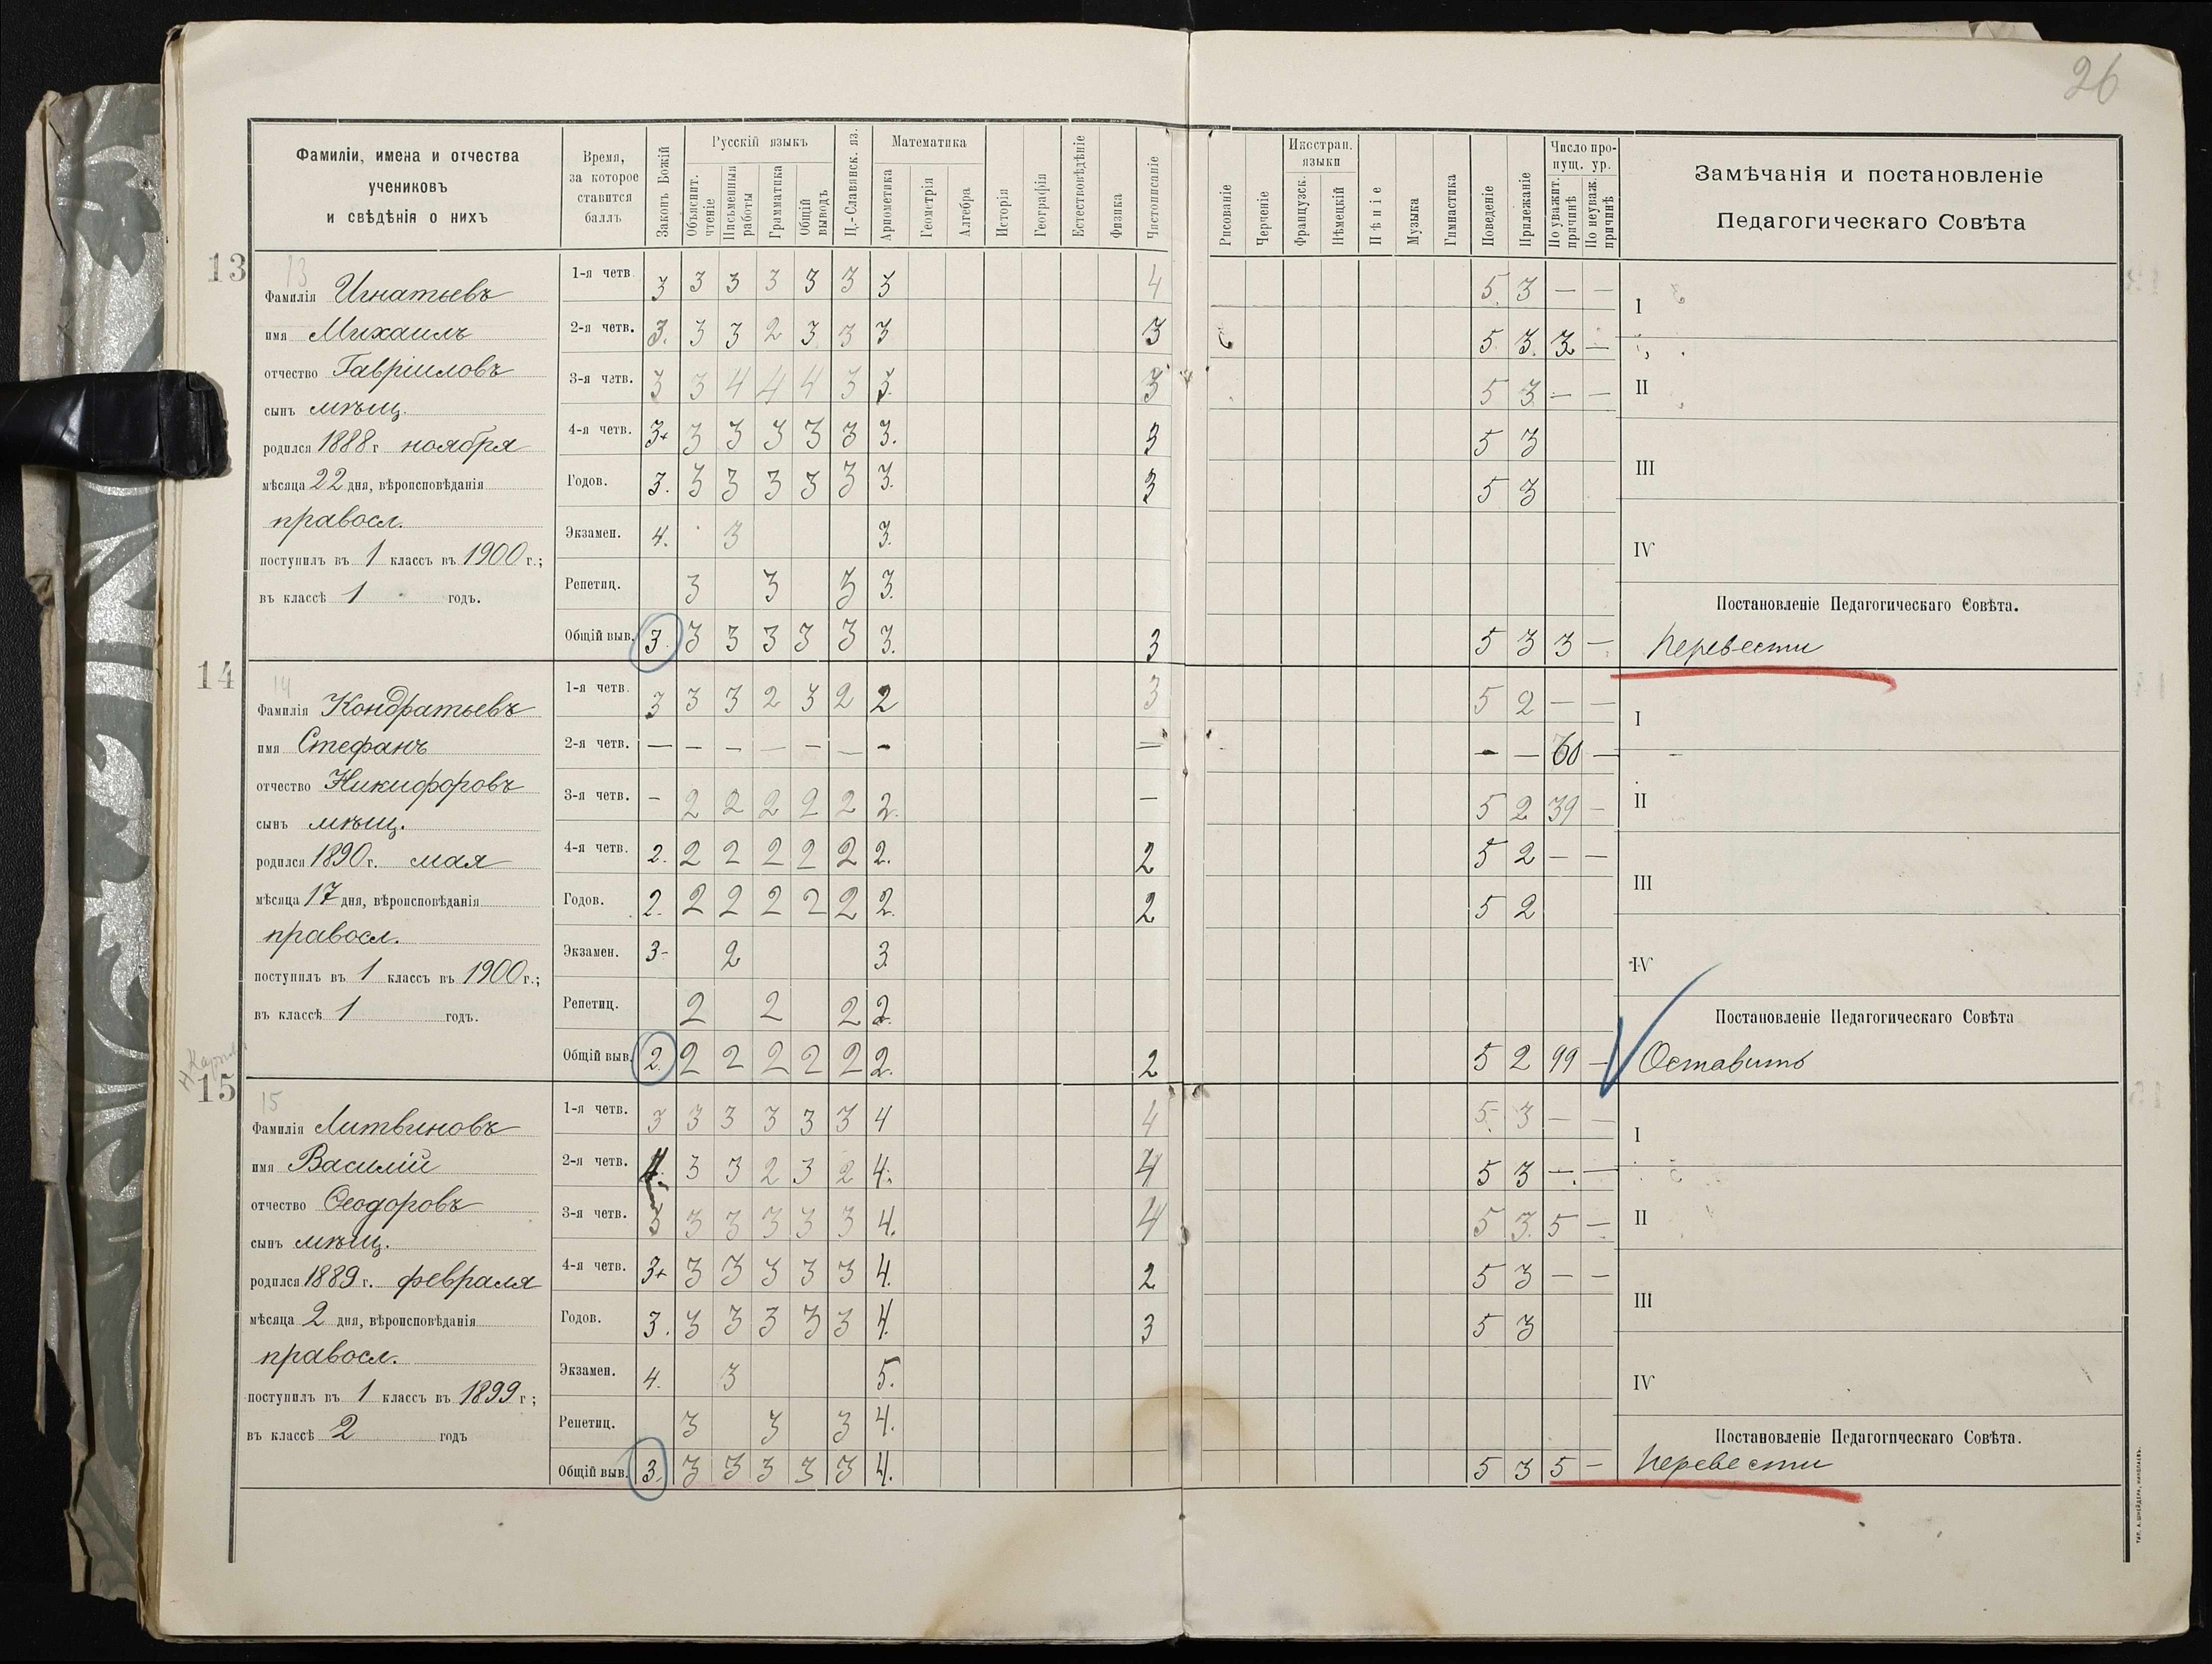 26
Фамиліи, имена и отчества
учениковъ
и свѣдѣнія о нихъ
Время,
за которое
ставится
баллъ
Законъ Божій
Русскій языкъ
Объяснит.
чтеніе
Письменныя
работы
Грамматика
Общій
выводъ
Ц.-Славянск. яз.
Математика
Ариѳметика
Геометрія
Алгебра
Исторія
Географія
Естествовѣдѣніе
Физика
Чистописаніе
Рисованіе
Черченіе
Иностран.
языки
Французск.
Нѣмецкій
Пѣніе
Музыка
Гимнастика
Поведеніе
Прилежаніе
Число про-
пущ. ур.
По уважит.
причинѣ
По неуваж.
причинѣ
Замѣчанія и постановленіе
Педагогическаго Совѣта
13
13
Фамилія Игнатьевъ
имя Михаилъ
отчество Гавріиловъ
сынъ мѣщ.
родился 1888 г ноября
мѣсяца 22 дня, вѣроисповѣданія
правосл.
поступилъ въ 1 классъ въ 1900 г.;
въ классѣ 1 годъ.
1-я четв 3 3 3 3 3 3 3 4 5. 3 — —
2-я четв. 3. 3 3 2 3 3 3 3 5 3. 3 —
3-я четв. 3 3 4 4 4 3 3. 3 5 3 — —
4-я четв. 3+ 3 3 3 3 3 3. 3 5 3
Годов. 3. 3 3 3 3 3 3. 3 5 3
Экзамен. 4. 3 3.
Репетиц. 3 3 3 3.
Общій выв. 3. 3 3 3 3 3 3. 3 5 3 3 —
I
II
III
IV
Постановленіе Педагогическаго Совѣта.
Перевести
14
14
Фамилія Кондратьевъ
имя Стефанъ
отчество Никифоровъ
сынъ мѣщ.
родился 1890 г. мая
мѣсяца 17 дня, вѣроисповѣданія
правосл.
поступилъ въ 1 классъ въ 1900 г.;
въ классѣ 1 годъ.
1-я четв. 3 3 3 2 3 2 2 3 5 2 — —
2-я четв. — — — — — — — — — — 60 —
3-я четв. — 2 2 2 2 2 2. — 5 2 39 —
4-я четв. 2. 2 2 2 2 2 2. 2 5 2 — —
Годов. 2. 2 2 2 2 2 2. 2 5 2
Экзамен. 3- 2 3.
Репетиц. 2 2 2 2.
Общій выв. 2. 2 2 2 2 2 2. 2 5 2 99 —
I
II
III
IV
Постановленіе Педагогическаго Совѣта
Оставить
15
15
Фамилія Литвиновъ
имя Василій
отчество Ѳеодоровъ
сынъ мѣщ.
родился 1889 г. февраля
мѣсяца 2 дня, вѣроисповѣданія
правосл.
поступилъ въ 1 классъ въ 1899 г;
въ классѣ 2 годъ
1-я четв. 3 3 3 3 3 3 4 4 5. 3 — —
2-я четв. 4. 3 3 2 3 2 4. 4 5 3 — —
3-я четв. 3 3 3 3 3 3 4. 4 5 3. 5 —
4-я четв. 3+ 3 3 3 3 3 4. 2 5 3 — —
Годов. 3. 3 3 3 3 3 4. 3 5 3
Экзамен. 4. 3 5.
Репетиц. 3 3 3 4.
Общій выв. 3. 3 3 3 3 3 4. 5 3 5 —
I
II
III
IV
Постановленіе Педагогическаго Совѣта.
Перевести